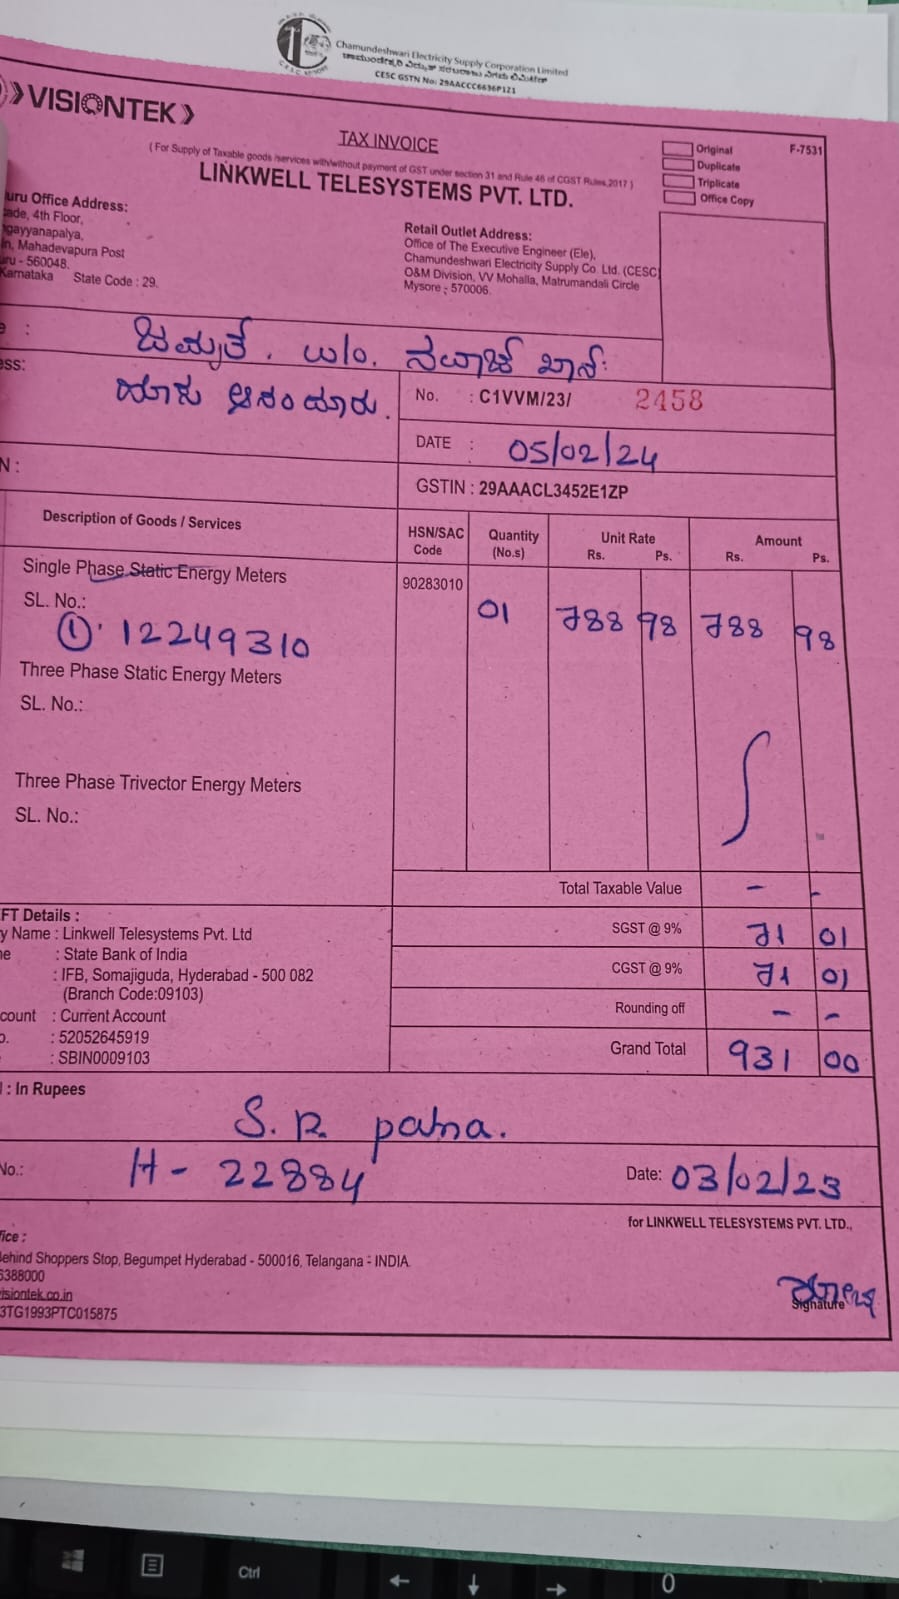 Chamundeshwari Electricity Supply Corporation Limited
CESC GSTN No: 29AACCC6636P1Z1
VISIONTEK
TAX INVOICE
( For Supply of Taxable goods /services with/without payment of GST under section 31 and Rule 46 of CGST Rules,2017 )
LINKWELL TELESYSTEMS PVT. LTD.
Original
Duplicate
Triplicate
Office Copy
F-7531
uru Office Address:
ade, 4th Floor,
gayyanapalya,
n, Mahadevapura Post
uru - 560048.
Karnataka State Code : 29.
Retail Outlet Address:
Office of The Executive Engineer (Ele),
Chamundeshwari Electricity Supply Co. Ltd. (CESC)
O&M Division, VV Mohalla, Matrumandali Circle
Mysore - 570006.
e :
w/o.
ess:
No. : C1VVM/23/ 2458
DATE : 05/02/24
N :
GSTIN : 29AAACL3452E1ZP
Description of Goods / Services HSN/SAC Code Quantity (No.s) Unit Rate Rs. Ps. Amount Rs. Ps.
Single Phase Static Energy Meters 90283010
SL. No.: 01 788 98 788 98
① 12249310
Three Phase Static Energy Meters
SL. No.:
Three Phase Trivector Energy Meters
SL. No.:
Total Taxable Value - -
SGST @ 9% 71 01
CGST @ 9% 71 01
Rounding off - -
Grand Total 931 00
FT Details :
y Name : Linkwell Telesystems Pvt. Ltd
me : State Bank of India
: IFB, Somajiguda, Hyderabad - 500 082
(Branch Code:09103)
count : Current Account
o. : 52052645919
: SBIN0009103
: In Rupees
S. R patna.
No.: H - 22884 Date: 03/02/23
for LINKWELL TELESYSTEMS PVT. LTD.,
fice :
Behind Shoppers Stop, Begumpet Hyderabad - 500016, Telangana - INDIA.
6388000
visiontek.co.in
3TG1993PTC015875
Signature
Ctrl
0